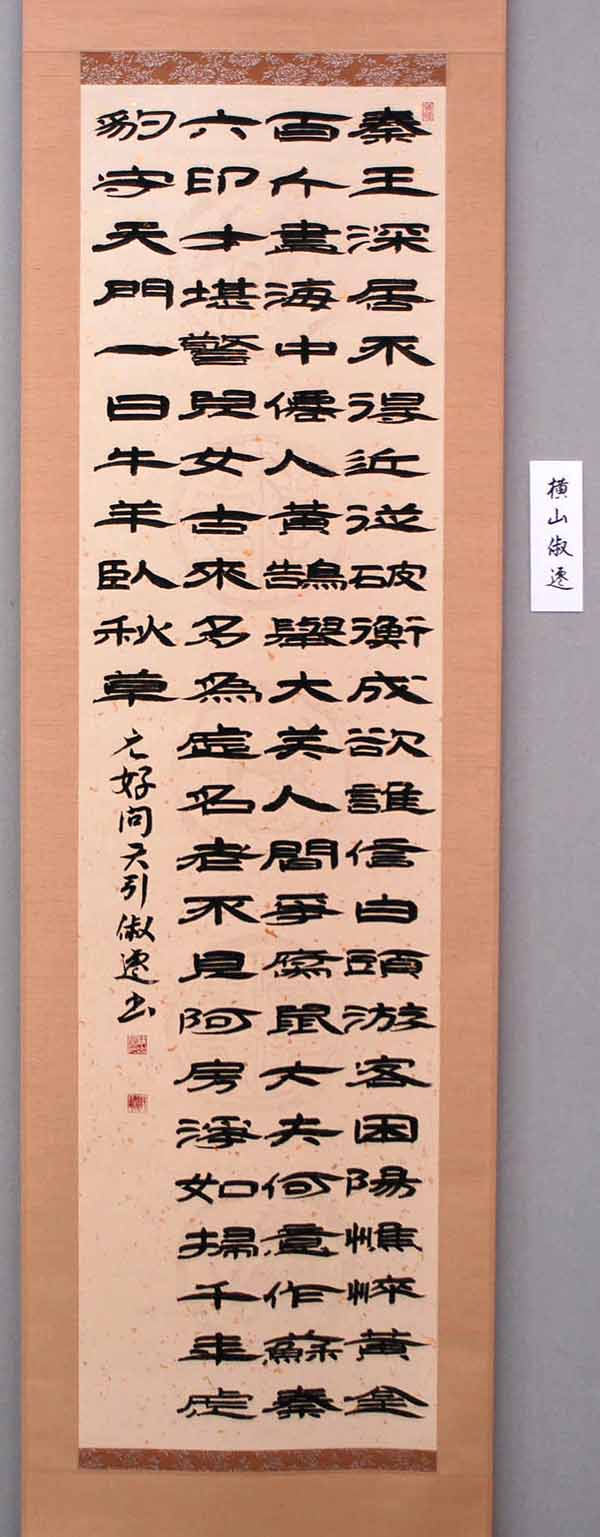 秦王深居不得近從破衡成欲誰信白頭游客困陽憔悴黄金
百斤盡海中僊人黄鵠舉大笑人間爭腐鼠丈夫何意作蘇秦
六印才堪警兒女古來多為虛名老不見阿房淨如掃千年虎
豹守天門一日牛羊臥秋草
元好問天引俶遷書
横山俶遷